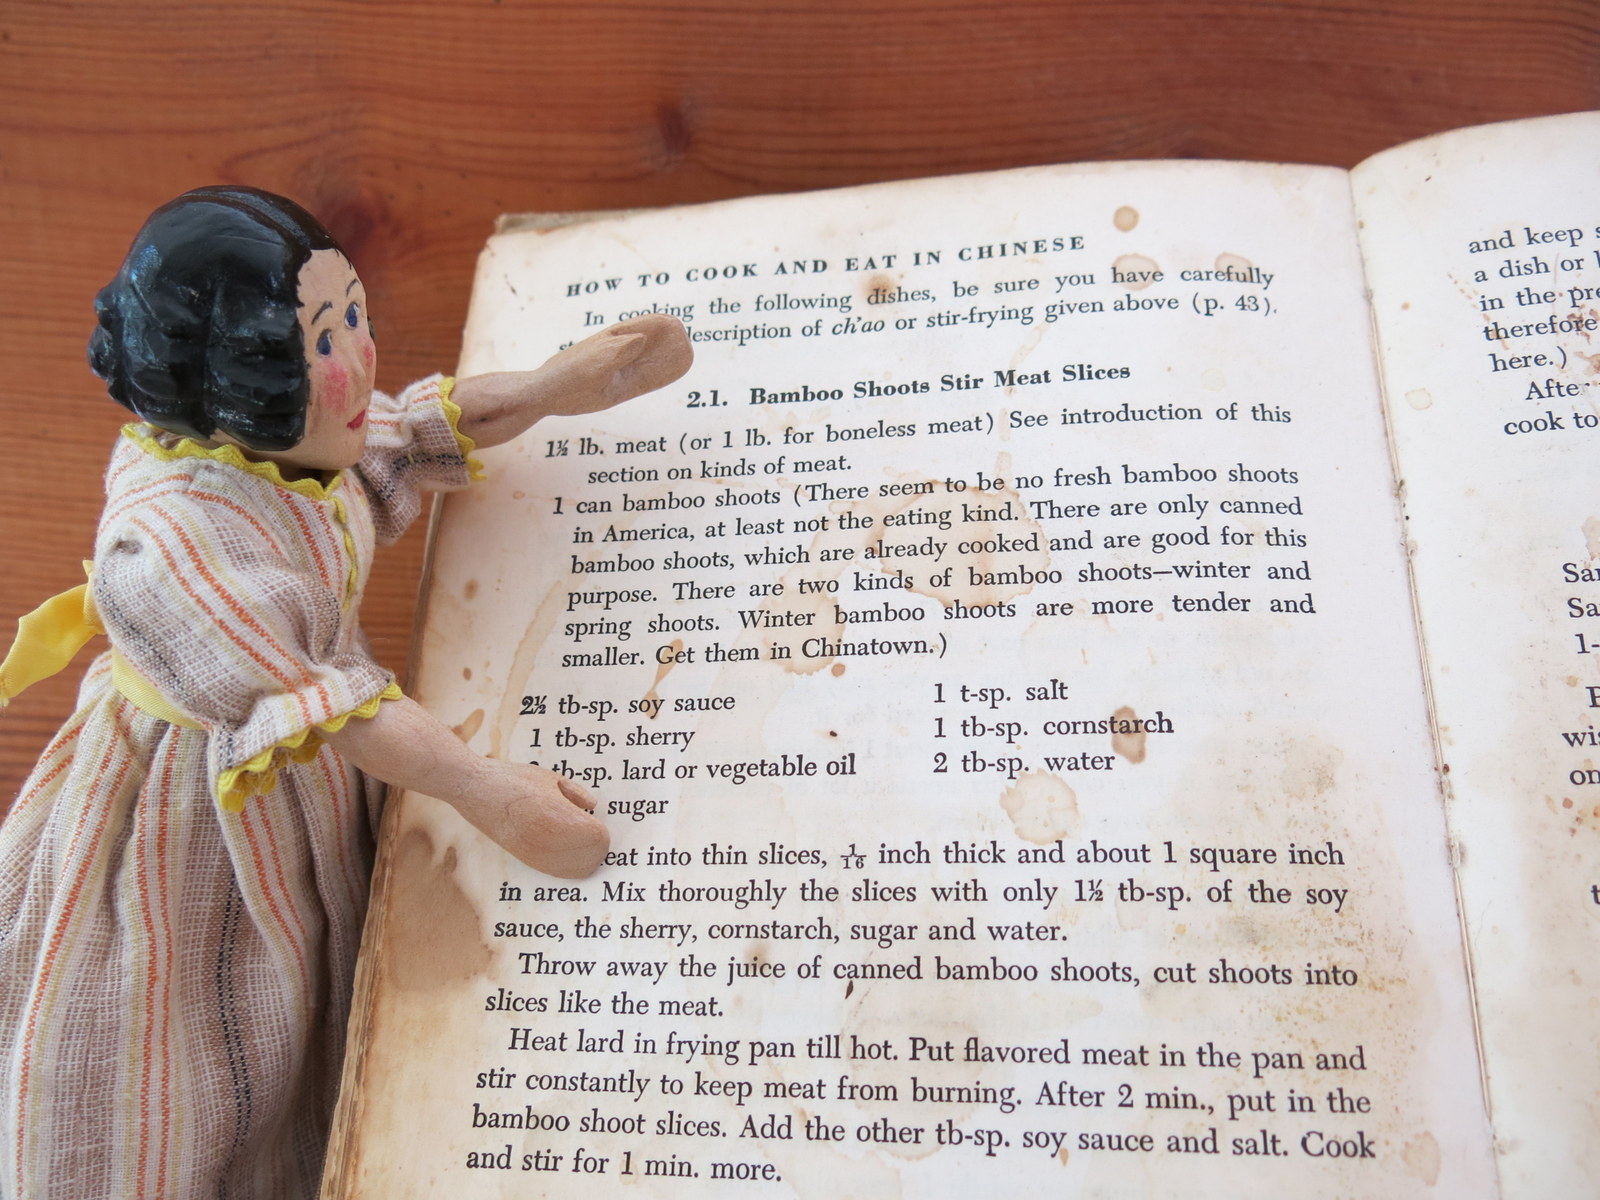 HOW TO COOK AND EAT IN CHINESE
In cooking the following dishes, be sure you have carefully
description of ch'ao or stir-frying given above (p. 43).
2.1. Bamboo Shoots Stir Meat Slices
1½ lb. meat (or 1 lb. for boneless meat) See introduction of this
section on kinds of meat.
1 can bamboo shoots (There seem to be no fresh bamboo shoots
in America, at least not the eating kind. There are only canned
bamboo shoots, which are already cooked and are good for this
purpose. There are two kinds of bamboo shoots—winter and
spring shoots. Winter bamboo shoots are more tender and
smaller. Get them in Chinatown.)
2½ tb-sp. soy sauce
1 tb-sp. sherry
tb-sp. lard or vegetable oil
sugar
1 t-sp. salt
1 tb-sp. cornstarch
2 tb-sp. water
eat into thin slices, 1/16 inch thick and about 1 square inch
in area. Mix thoroughly the slices with only 1½ tb-sp. of the soy
sauce, the sherry, cornstarch, sugar and water.
Throw away the juice of canned bamboo shoots, cut shoots into
slices like the meat.
Heat lard in frying pan till hot. Put flavored meat in the pan and
stir constantly to keep meat from burning. After 2 min., put in the
bamboo shoot slices. Add the other tb-sp. soy sauce and salt. Cook
and stir for 1 min. more.
and keep s
a dish or
in the pre
therefore
here.)
After
cook to
Sar
Sa
1-
wis
on
t